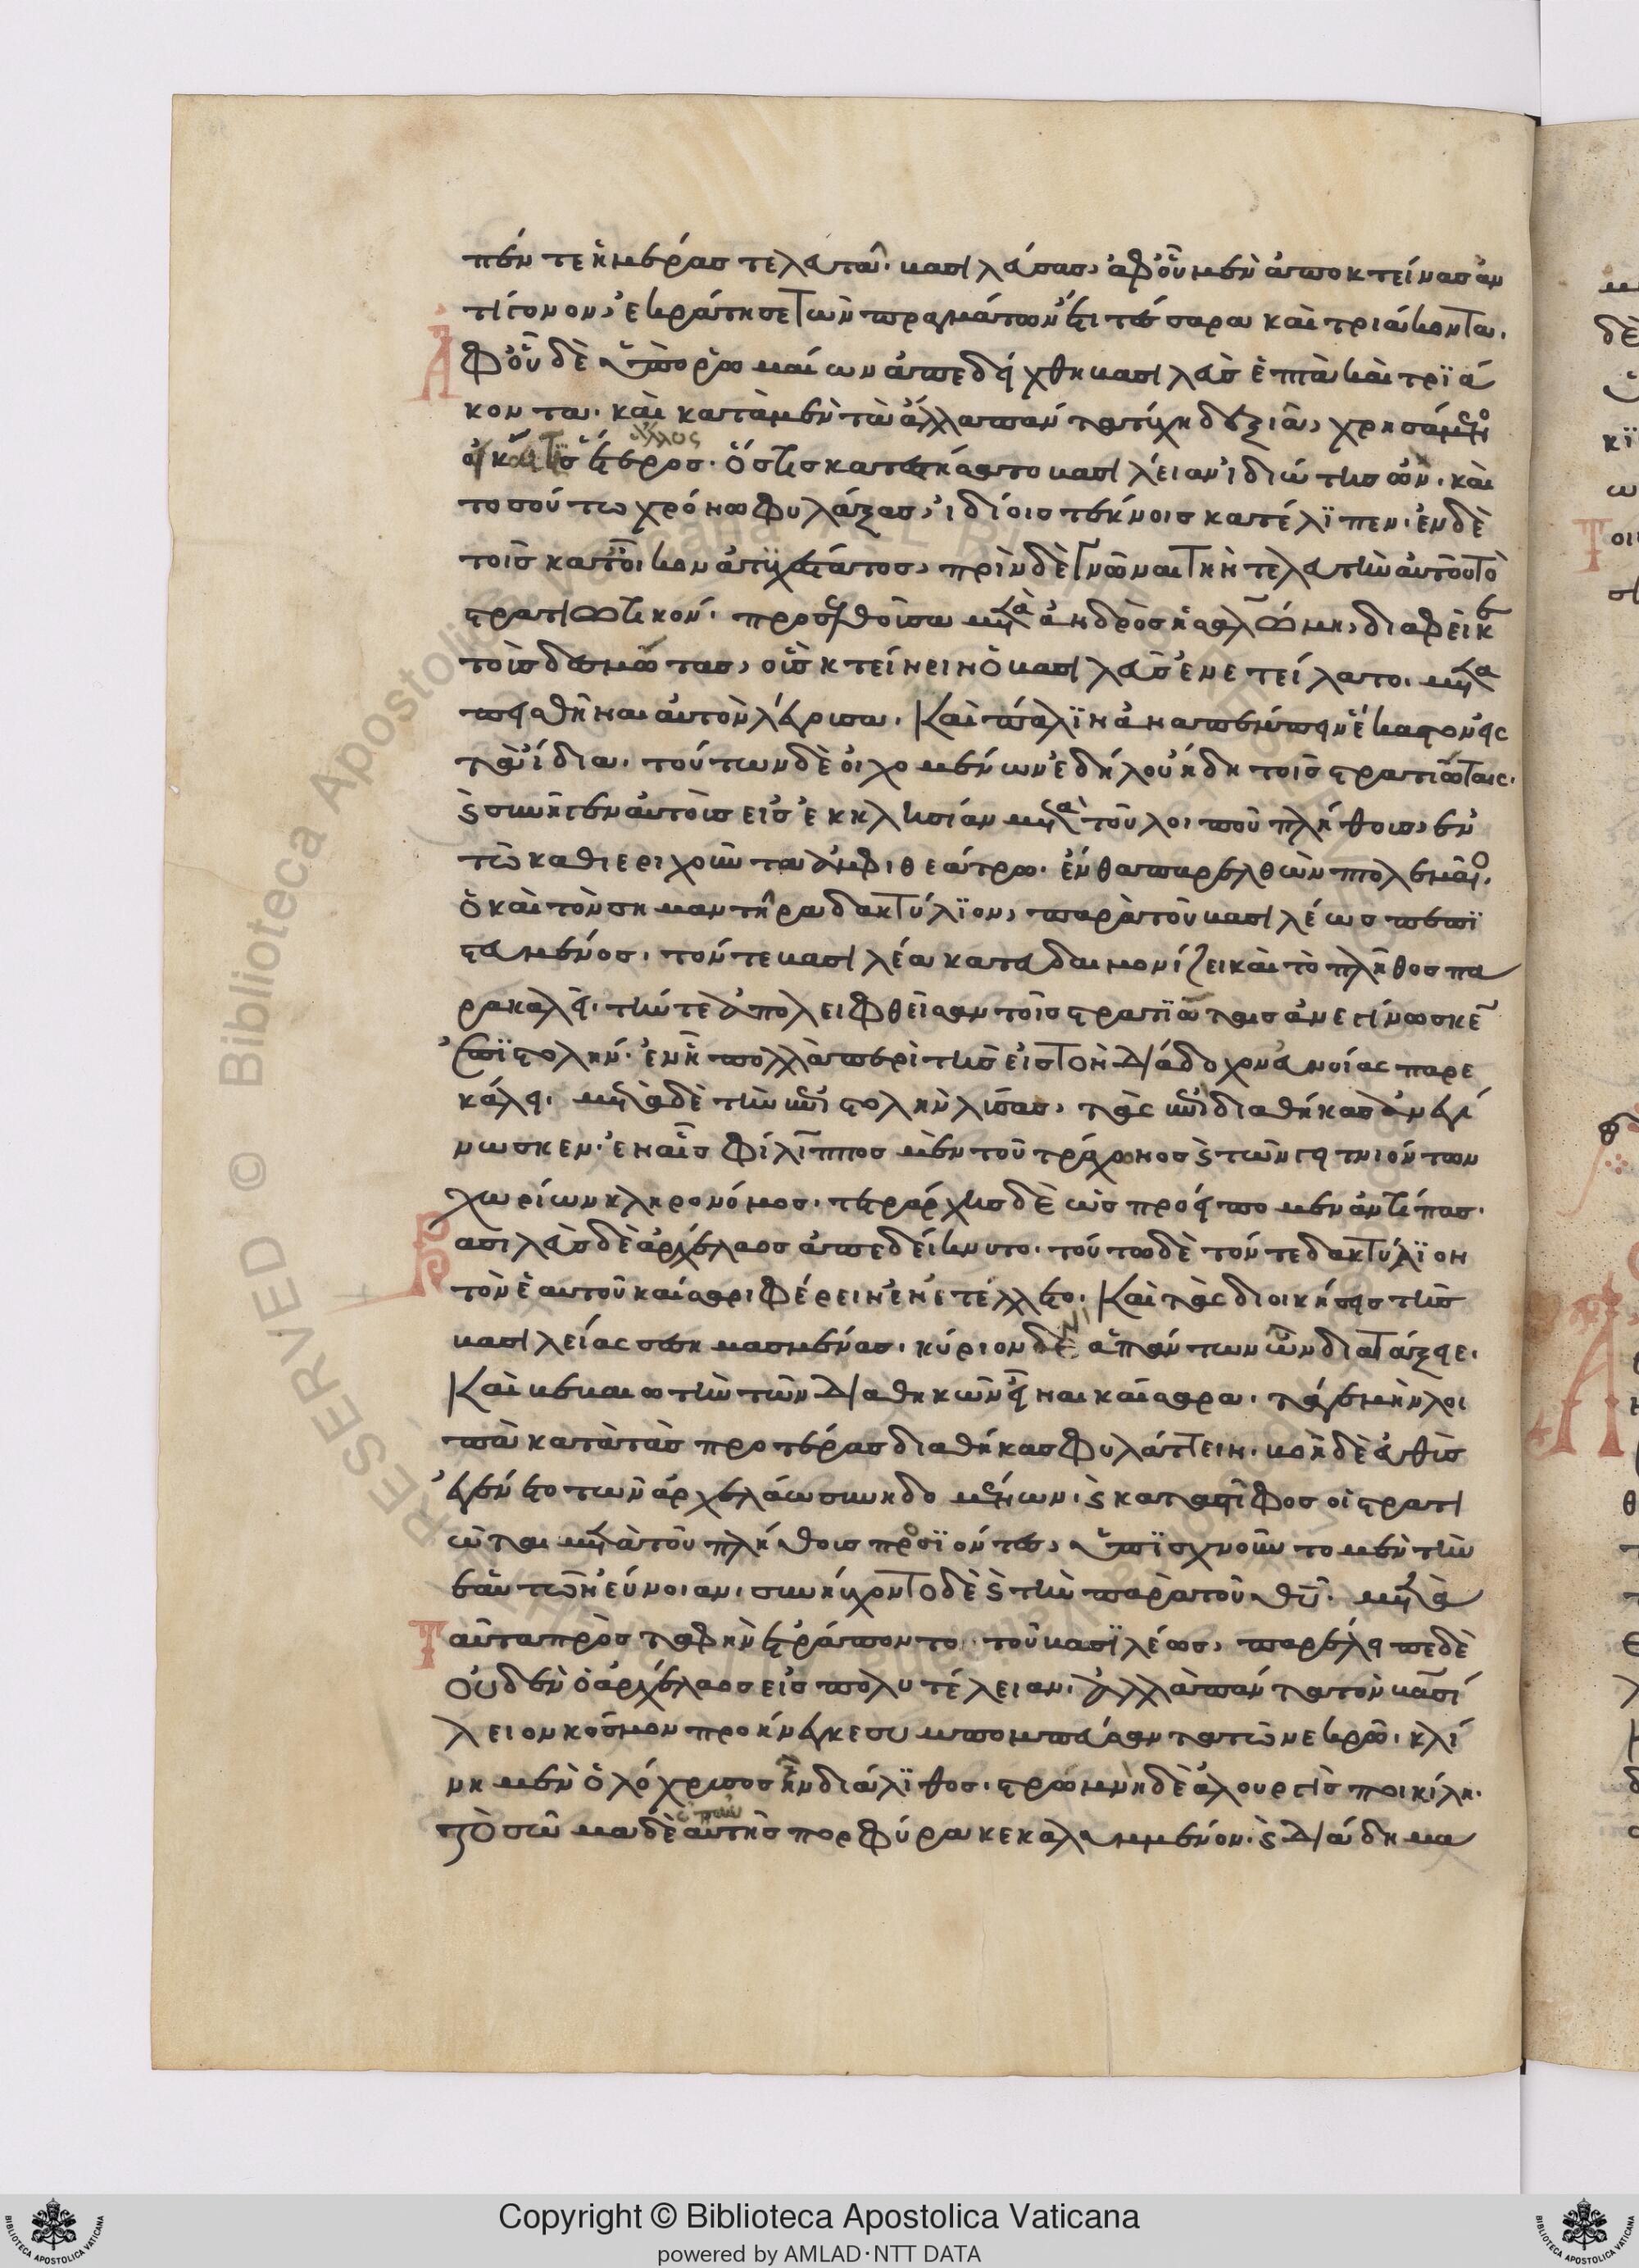 πέντε ἡμέρας τελευτᾶ. βασιλεύσας, ἀφ' οὗ μὲν ἀποκτείνας ἀν
τίγονον, ἐκράτησε τῶν πραγμάτων ἔτη τέσσαρα καὶ τριάκοντα.
Ἀφ' οὗ δὲ ὑπὸ ῥωμαίων ἀπεδείχθη βασιλεὺς ἑπτὰ καὶ τριά
κοντα. καὶ κατὰ μὲν τὰ ἄλλα πάντα τύχη δεξιᾶ, χρησάμενο
εἰ καί τις ἕτερος. ὅστις κατεκτήσατο βασιλείαν ἰδιώτης ὤν. καὶ
τοσούτω χρόνω φυλάξας, ἰδίοις τέκνοις κατέλιπεν. ἐν δὲ
τοῖς κατ' οἶκον ἀτυχέστατος, πρὶν δὲ γνῶναι τὴν τελευτὴν αὐτοῦ τὸ
στρατιωτικόν. προελθοῦσα μετὰ τἀνδρὸς ἡ σαλώμη, διαφεὶκε
τοὺς δεσμώτας, οὓς κτείνειν ὁ βασιλεὺς ἐνετείλατο. μετα
πεισθῆναι αὐτὸν λέγουσα. καὶ πάλιν ἀναπέμπειν ἕκαστον εἰς
τὰ ἴδια. τούτων δὲ οἰχομένων ἐδήλου ἤδη τοῖς στρατιώταις.
καὶ συνῆγεν αὐτοὺς εἰς ἐκκλησίαν μετὰ τοῦ λοιποῦ πλήθους, ἐν
τῶ καθ' ἱεριχοῦντα ἀμφιθεάτρω. ἔνθα παρελθὼν πτολεμαῖο.
ὁ καὶ τὸν σημαντῆρα δακτύλιον, παρὰ τοῦ βασιλέως πεπι
στευμένος. τόν τε βασιλέα κατευδαιμονίζει καὶ τὸ πλῆθος πα
ρακαλεῖ. τήν τε ἀπολειφθεῖσαν τοῖς στρατιώταις ἀνεγίνωσκεν
ἐπιστολήν. ἐν ἧ πολλὰ περὶ τῆς εἰς τὸν διάδοχον εὐνοίας παρε
κάλει. μετὰ δὲ τὴν ἐπιστολὴν λύσας, τὰς ἐπιδιαθήκας ἀνεγί
νωσκεν. ἐν αἷς φίλιππος μὲν τοῦ τράχωνος καὶ τῶν γειτνιόντων
χωρίων κληρονόμος. τετράρχης δὲ ὡς προείπομεν ἀντίπας.
Βασιλεὺς δὲ ἀρχέλαος ἀπεδείκνυτο. τούτω δὲ τόν τε δακτύλιον
τὸν ἑαυτοῦ καίσαρι φέρειν ἐνετέλλετο. καὶ τὰς διοικήσεις τῆς
βασιλείας σεσημασμένας. κύριον δὲ ἁπάντων ὧν διατάξειε.
καὶ βεβαιωτὴν τῶν διαθηκῶν εἶναι καίσαρα. τά γε μὴν λοι
πὰ κατὰ τὰς προτέρας διαθήκας φυλάττειν. βοὴ δὲ εὐθὺς
ἐγένετο τῶν ἀρχελάω συνηδομένων. καὶ κατὰ στῖφος οἱ στρατι
ῶται μετὰ τοῦ πλήθους προσιόντες, ὑπισχνοῦντο μὲν τὴν
ἑαυτῶν εὔνοιαν. συνηύχοντο δὲ καὶ τὴν παρὰ τοῦ θυ. μετὰ
Ταῦτα πρὸς ταφὴν ἐτράποντο τοῦ βασιλέως, παρέλειπε δὲ
οὐδὲν ὁ ἀρχέλαος εἰς πολυτέλειαν. ἀλλὰ πάντα τὸν βασί
λειον κόσμον προήνεγκε συμπομπεύσαντα τῶ νεκρῶ. κλί
νη μὲν ὁλόχρυσος ἦν διάλιθος. στρωμνὴ δὲ ἁλουργὶς ποικίλη.
τὸ σῶμα δὲ ἐπ' αὐτῆς πορφύρα κεκαλυμμένον. καὶ διάδημα